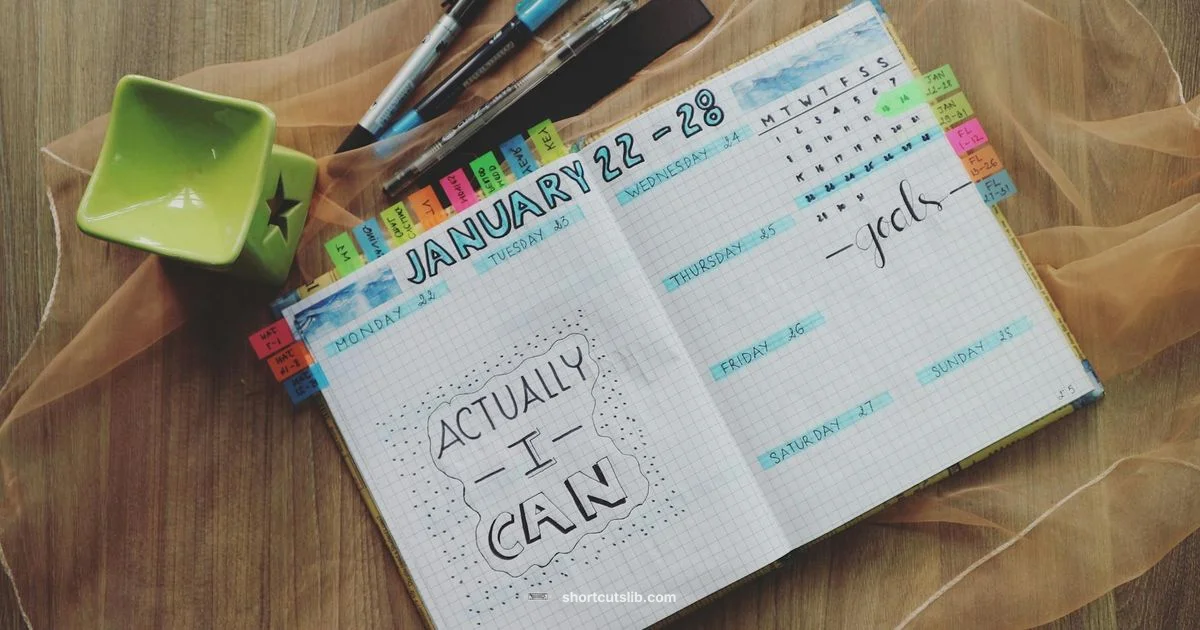 JANUARY 22 - 28
MONDAY 22
TUESDAY 23
ACTUALLY
- I -
CAN
WEDNESDAY 24
THURSDAY 25
FRIDAY 26
SATURDAY 27
SUNDAY 28
M T W T F S S
1 2 3 4 5 6 7
8 9 10 11 12 13 14
15 16 17 18 19 20 21
22 23 24 25 26 27 28
29 30 31
- goals -
KEY
JAN 22-28
JAN 29-31
FL 1-12
FL 13-26
JAN 1-7
JAN 8-14
shortcutslib.com